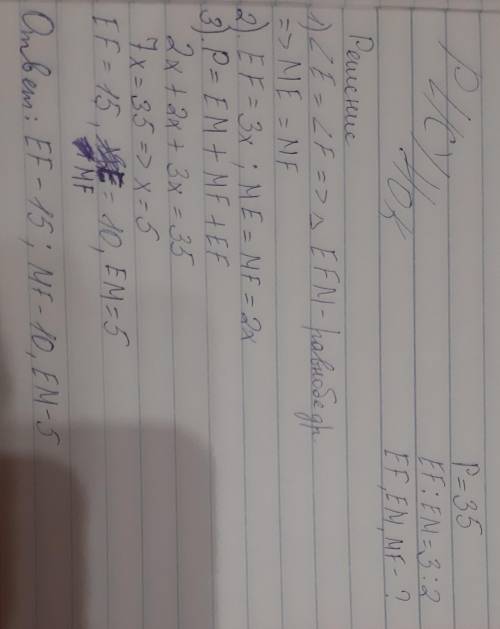 P=35
EF:EM=3:2
EF, EM, MF-?
Решение
1) ∠E=∠F=>△EFM-равнобедр.
=> ME=MF
2) EF=3x; ME=MF=2x
3) P=EM+MF+EF
2x+2x+3x=35
7x=35=>x=5
EF=15, =10, EM=5
MF
Ответ: EF-15; MF-10, EM-5